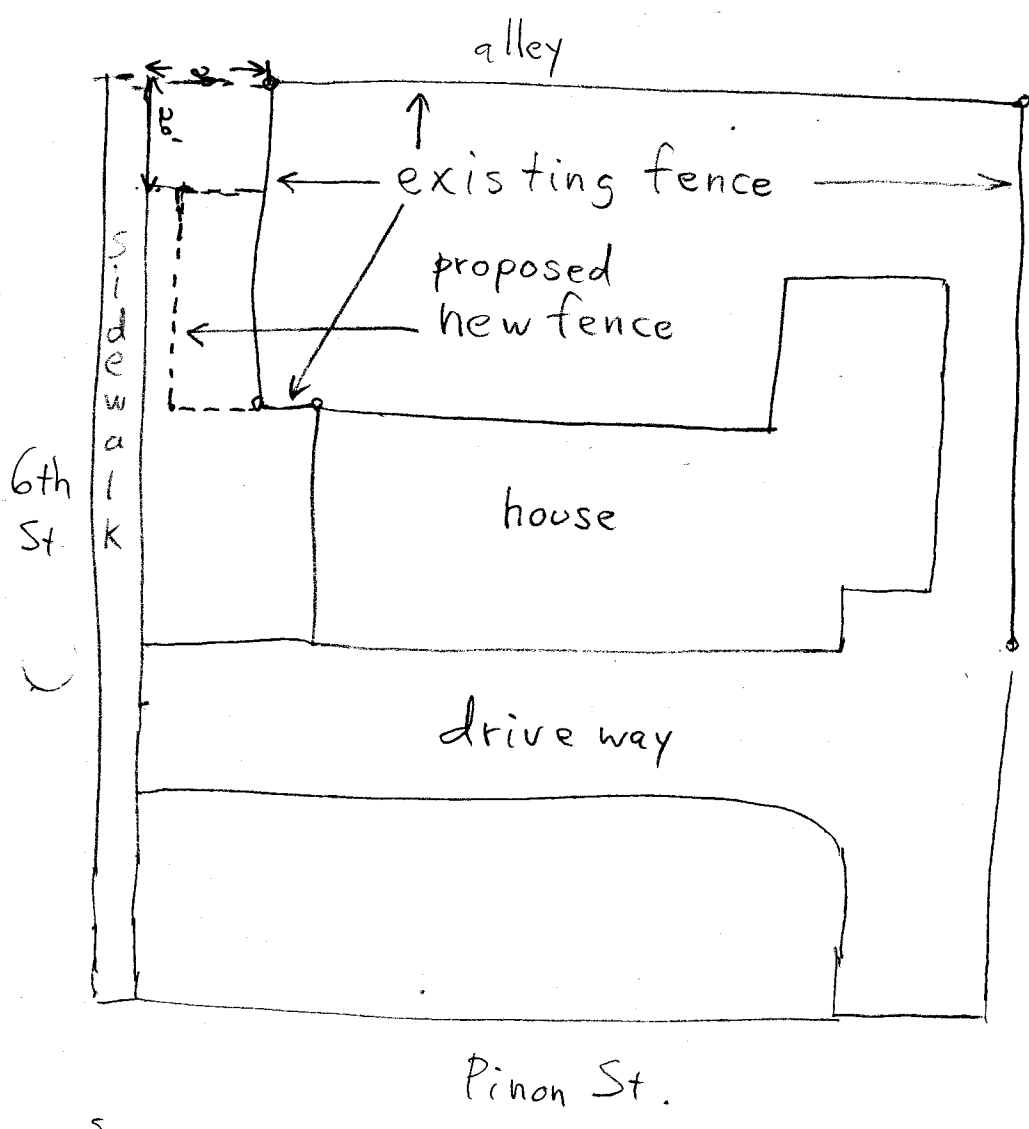 alley
20'
existing fence
proposed
new fence
sidewalk
6th
St.
house
drive way
Pinon St.